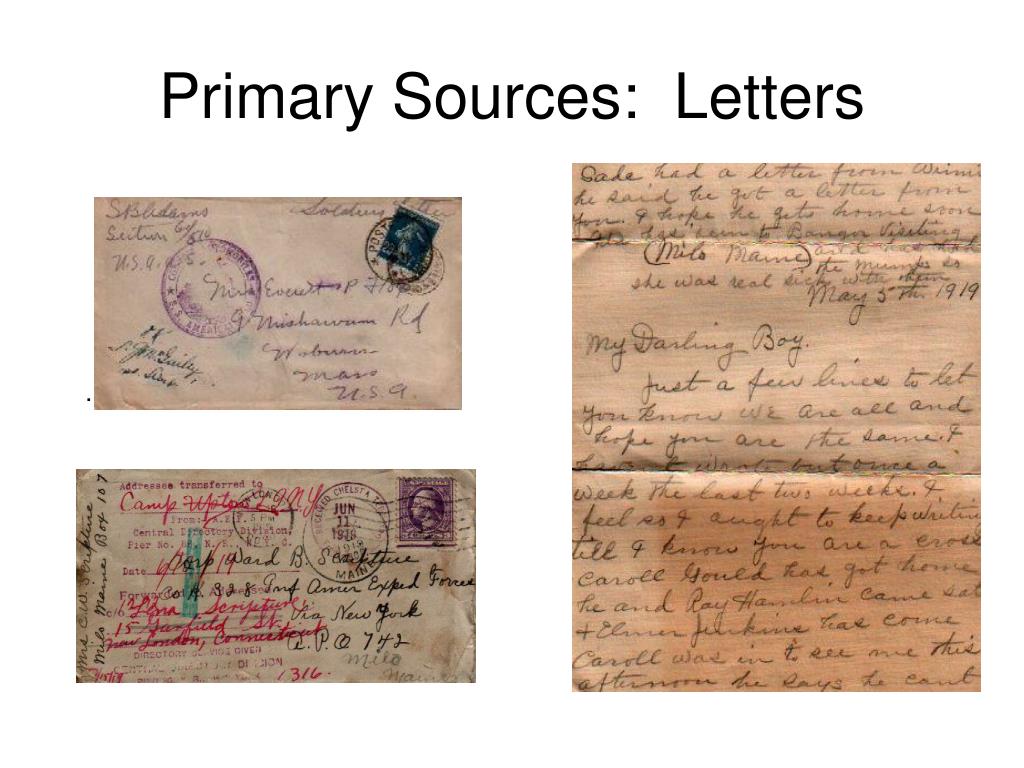 Primary Sources: Letters
S B Adams
Soldiers letter
Section
U.S.A.
Mishawum Rd
Woburn
Mass
U.S.A.
.
Addressee transferred to
Camp Upton
From: A.E.F.
Central Directory Division,
Pier No.
Date
Corp Ward B. Scripture
Co A 328 Inf Amer Exped Forces
Via New York
A.P.O 742
Milo
Maine
Lena Scripture
15 Garfield St.
New London, Connecticut
DIRECTORY SERVICE GIVEN
1316
Mrs C.W. Scripture
Milo Maine Box 107
RECEIVED
JUN
11
MAINE
Sade had a letter from
he said he got a letter from
you. I hope he gets home soon
has been to Bangor Visiting
(Milo Maine) and has had
the mumps so
she was real sick with them
May 5th 1919
My Darling Boy.
Just a few lines to let
you know we are all and
hope you are the same. I
havent wrote but once a
week the last two weeks. I
feel so I ought to keep writing
till I know you are a cross
Caroll Gould has got home
he and Ray Hamlin came sat
+ Elmer Jenkins has come
Caroll was in to see me this
afternoon he says he cant